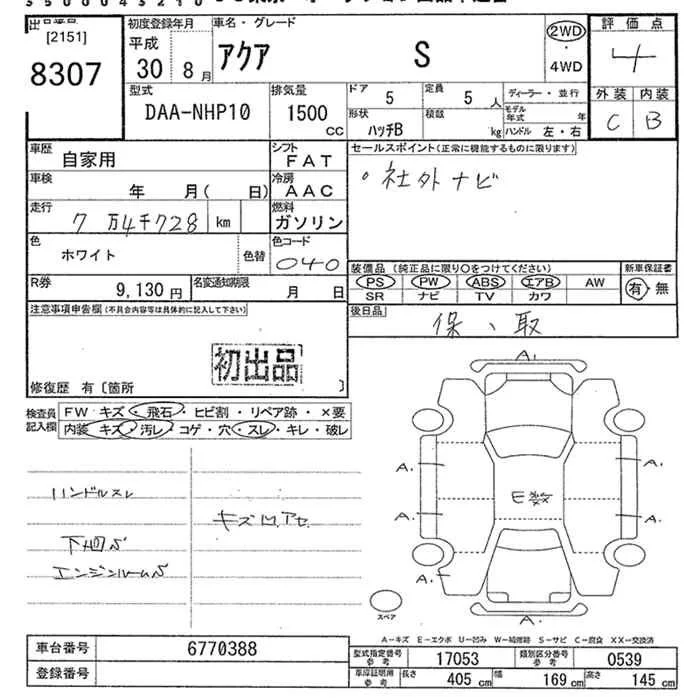 3500045210
出品番号
[2151]
8307
初度登録年月
平成
30 8月
車名・グレード
アクア S
2WD
・
4WD
評価点
4
外装 内装
C B
型式
DAA-NHP10
排気量
1500
CC
ドア 5
定員 5 人
形状 ハッチB
積載 kg
ディーラー・並行
モデル年式 年
ハンドル 左・右
車歴 自家用
シフト FAT
車検 年 月( 日)
冷房 AAC
走行 7万4千728 km
燃料 ガソリン
色 ホワイト 色替
色コード 040
R券 9,130 円
名変通知期限 月 日
セールスポイント(正常に機能するものに限ります)
・社外ナビ
装備品(純正品に限り○をつけてください)
新車保証書
PS PW ABS エアB AW
有・無
SR ナビ TV カワ
後日品
保、取
注意事項申告欄(不具合内容等は具体的に記入して下さい)
初出品
修復歴 有〔箇所 〕
検査員記入欄
FW キズ・飛石・ヒビ割・リペア跡・×要
内装 キズ・汚レ・コゲ・穴・スレ・キレ・破レ
ハンドルスレ
キズ凹アセ
下廻S
エンジンルームS
A.
A. A.
E
A. A.
A.
A.
スペア
A-キズ E-エクボ U-凹み W-補修跡 S-サビ C-腐食 XX-交換済
車台番号 6770388
登録番号
型式指定番号 参考 17053
類別区分番号 参考 0539
車庫証明用 参考
長さ 405 cm 幅 169 cm 高さ 145 cm